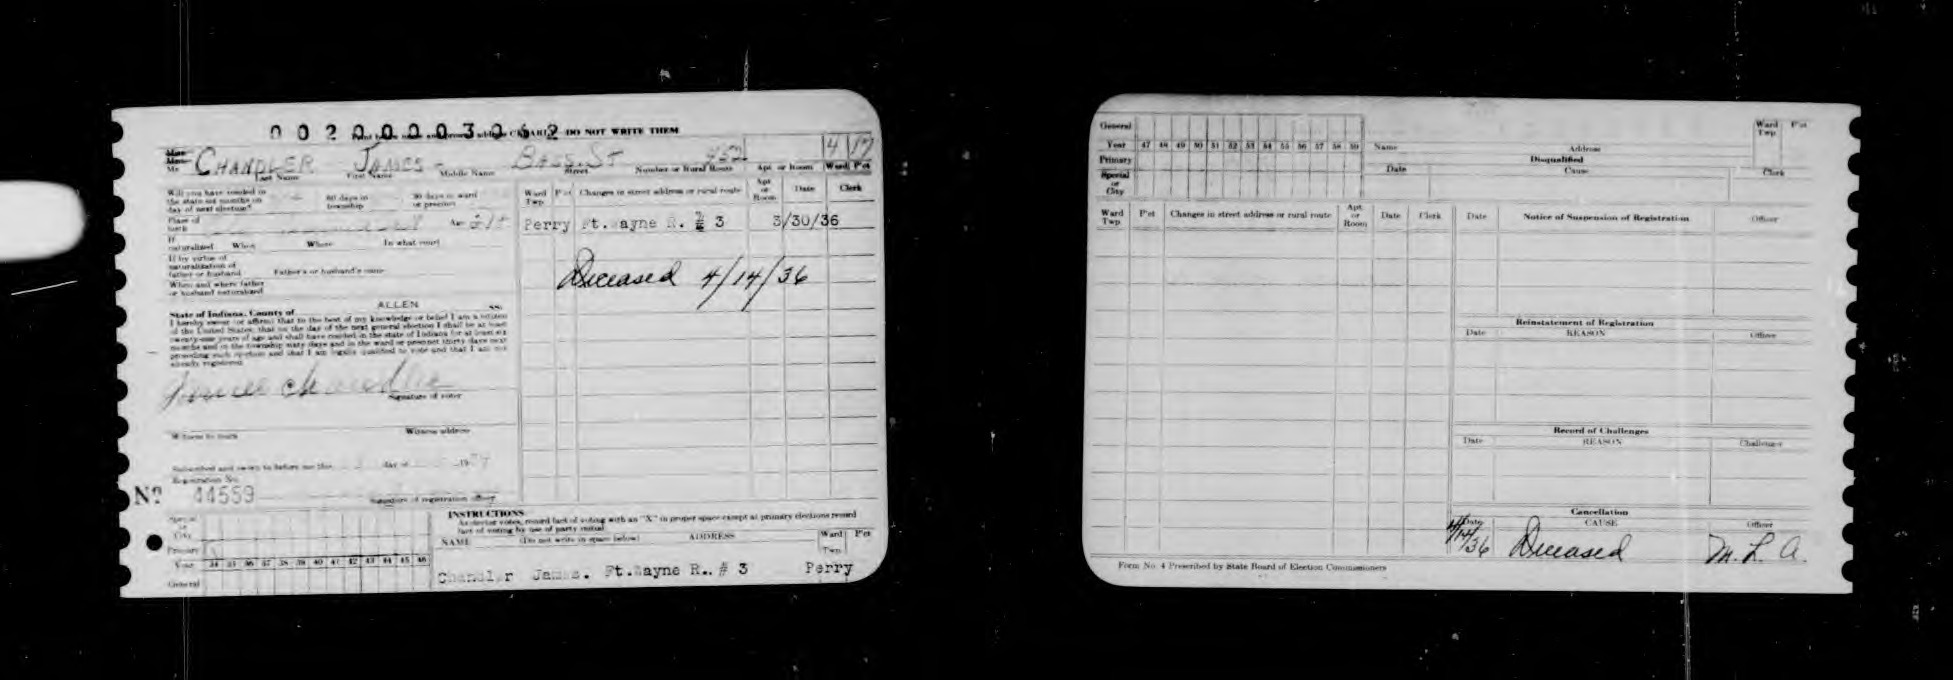 0 0 2 0 0 0 0 3 0 6 2
DO NOT WRITE THEM
4 17
CHANDLER JAMES. BASS. ST 452
Mr. Last Name First Name Middle Name Street Number or Rural Route Apt or Room Ward P'ct
Will you have resided in
the state six months on
day of next election?
60 days in
township
30 days in ward
or precinct
Place of
birth
Age 21+
If
naturalized When Where In what court
If by virtue of
naturalization of
father or husband
Father's or husband's name
When and where father
or husband naturalized
State of Indiana, County of ALLEN SS:
I hereby swear (or affirm) that to the best of my knowledge or belief I am a citizen
of the United States; that on the day of the next general election I shall be at least
twenty-one years of age and shall have resided in the state of Indiana for at least six
months and in the township sixty days and in the ward or precinct thirty days next
preceding such election and that I am legally qualified to vote and that I am not
already registered.
James Chandler
Signature of voter
Witness to mark Witness address
Subscribed and sworn to before me this day of 19
Registration No.
Nº 44559
Signature of registration officer
Ward
Twp.
P'ct
Changes in street address or rural route
Apt
or
Room
Date
Clerk
Perry Ft.Wayne R. # 3 3/30/36
Deceased 4/14/36
Special
or
City
Primary
Year 34 35 36 37 38 39 40 41 42 43 44 45 46
General
INSTRUCTIONS
As elector votes, record fact of voting with an "X" in proper space except at primary elections record
fact of voting by use of party initial
NAME (Do not write in space below) ADDRESS Ward
Twp. P'ct
Chandler James. Ft.Wayne R.. # 3 Perry
General
Year 47 48 49 50 51 52 53 54 55 56 57 58 59
Primary
Special
or
City
Name Address
Ward
Twp
P'ct
Disqualified
Date Cause Clerk
Ward
Twp.
P'ct
Changes in street address or rural route
Apt.
or
Room
Date
Clerk
Date Notice of Suspension of Registration Officer
Reinstatement of Registration
Date REASON Officer
Record of Challenges
Date REASON Challenger
Cancellation
Date CAUSE Officer
4/14/36 Deceased M. L. A.
Form No. 4 Prescribed by State Board of Election Commissioners